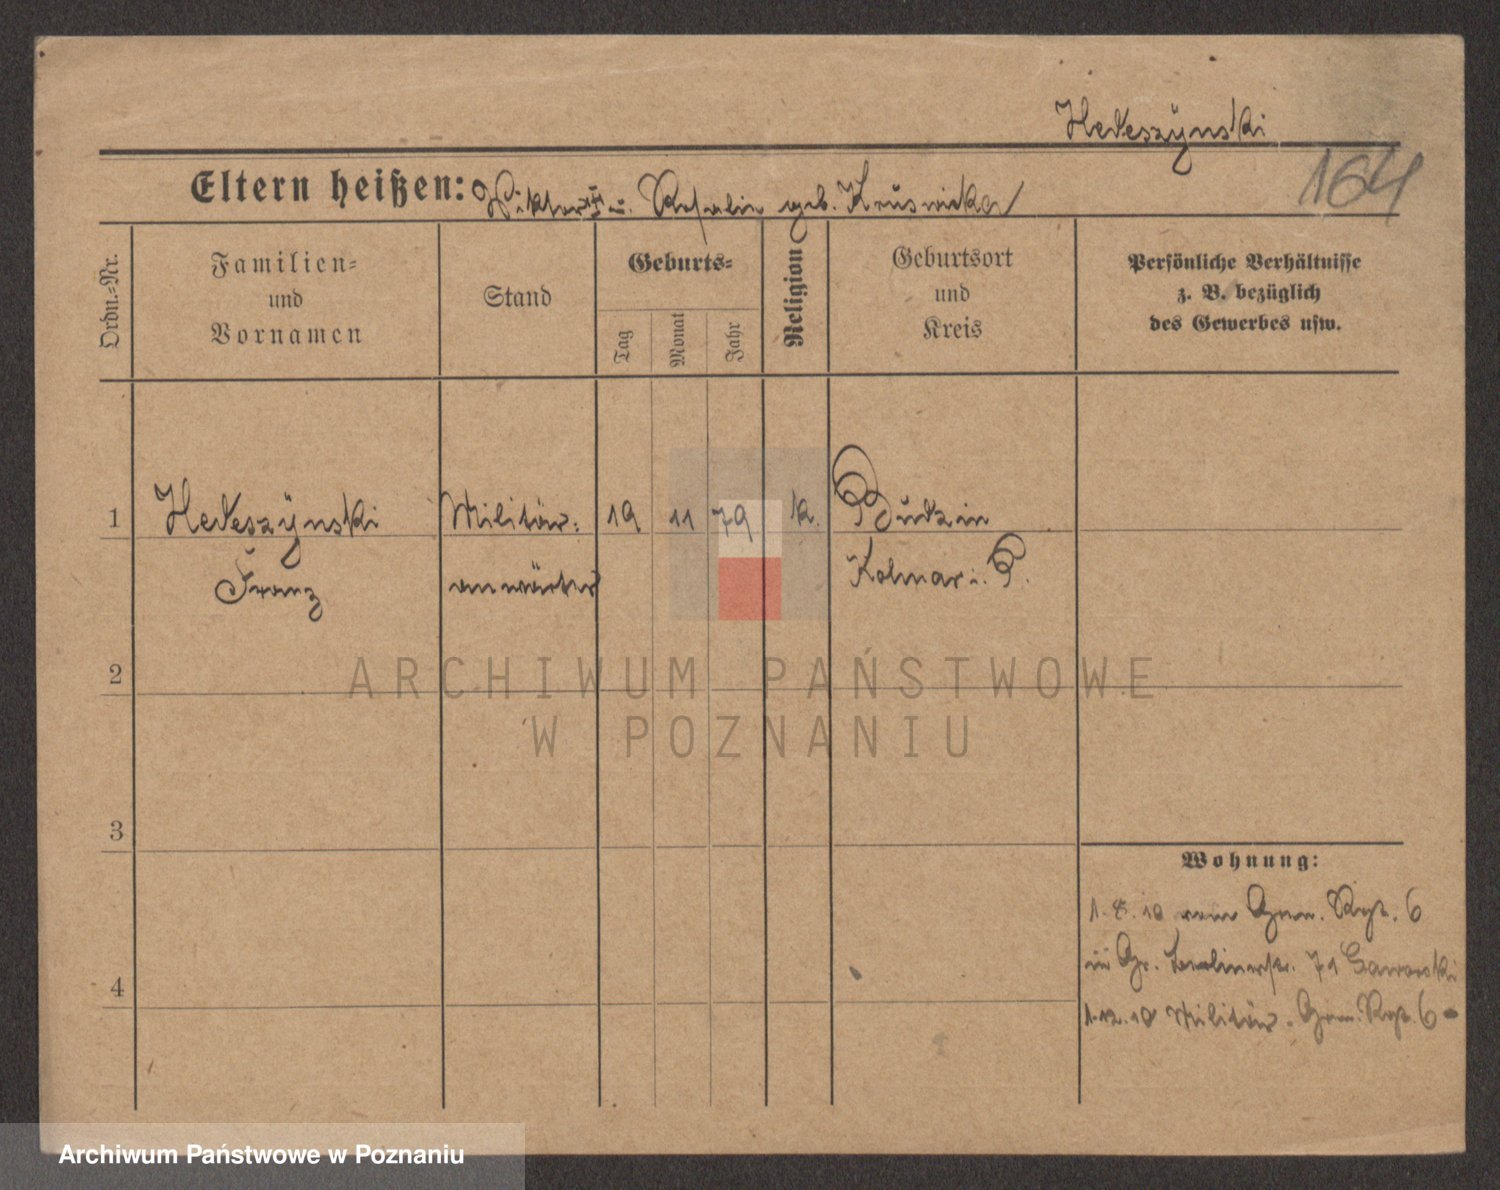 164
Eltern heißen: Wiktor u. Rosalie geb. Kruswicka
Ordn.-Nr.
Familien-
und
Vornamen
Stand
Geburts-
Tag
Monat
Jahr
Religion
Geburtsort
und
Kreis
Persönliche Verhältnisse
z. B. bezüglich
des Gewerbes usw.
1
Militär-
19
11
79
k.
Budzin
Franz
anwärter
Kolmar i. P.
2
3
4
Wohnung:
1.8.10 vom Gren. Rgt. 6
in Gr. Berlinerstr. 71 Gaworski
1.12.10 Militär. Gren. Rgt. 6
ARCHIWUM PAŃSTWOWE
W POZNANIU
Archiwum Państwowe w Poznaniu